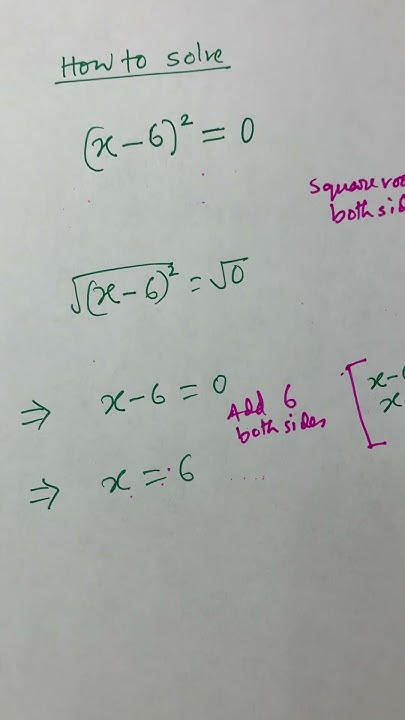 How to solve
(x-6)² = 0
Square
both
√(x-6)² = √0
⇒ x-6 = 0
Add 6
both sides
x-
x
⇒ x = 6